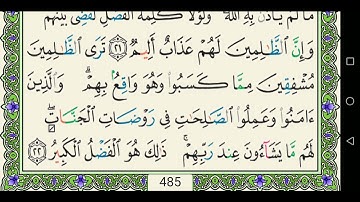 مَا لَمْ يَأْذَنۢ بِهِ ٱللَّهُ ۚ وَلَوْلَا كَلِمَةُ ٱلْفَصْلِ لَقُضِىَ بَيْنَهُمْ
وَإِنَّ ٱلظَّٰلِمِينَ لَهُمْ عَذَابٌ أَلِيمٌ ٢١ تَرَى ٱلظَّٰلِمِينَ
مُشْفِقِينَ مِمَّا كَسَبُوا۟ وَهُوَ وَاقِعٌۢ بِهِمْ ۗ وَٱلَّذِينَ
ءَامَنُوا۟ وَعَمِلُوا۟ ٱلصَّٰلِحَٰتِ فِى رَوْضَاتِ ٱلْجَنَّاتِ ۖ
لَهُم مَّا يَشَآءُونَ عِندَ رَبِّهِمْ ۚ ذَٰلِكَ هُوَ ٱلْفَضْلُ ٱلْكَبِيرُ ٢٢
485